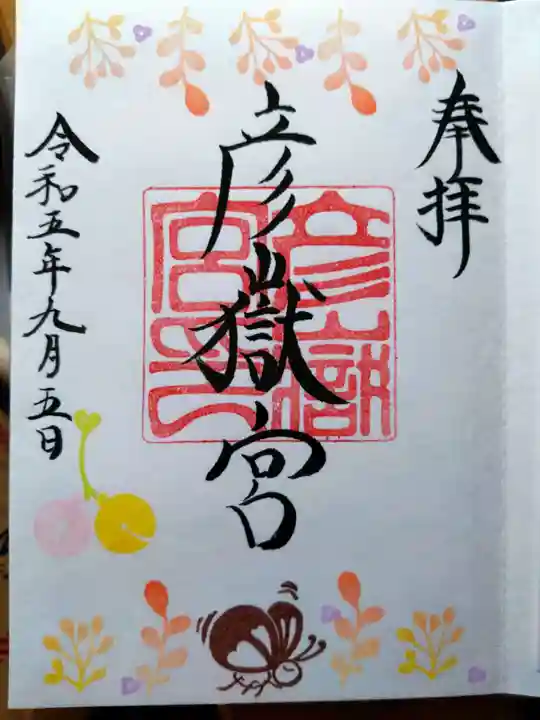 奉拝
彦嶽宮
彦嶽宮印
令和五年九月五日